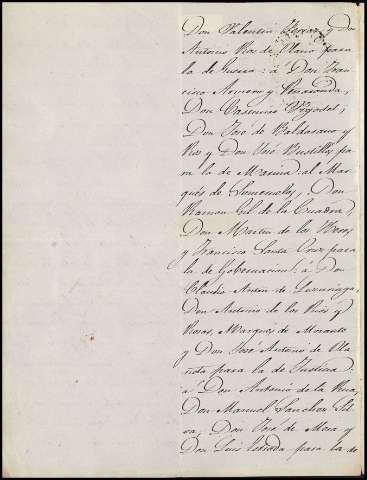 Don Valentin Ferraz y Don
Antonio Ros de Olano para
la de Guerra: á Don Fran
cisco Armero y Peñaranda,
Don Casimiro Vigodet;
Don José de Baldasano y
Ros y Don José Bustillos pa
ra la de Marina: al Mar
qués de Someruelos, Don
Ramon Gil de la Cuadra,
Don Martin de los Heros
y Francisco Santa Cruz para
la de Gobernacion: á Don
Claudio Anton de Luzuriaga,
Don Antonio de los Rios y
Rosas, Marques de Morante
y Don José Antonio de Ola
ñeta para la de Justicia:
á Don Antonio de la Rua,
Don Manuel Sanchez Sil
va, Don José de Mora y
Don Luis Estrada para la de